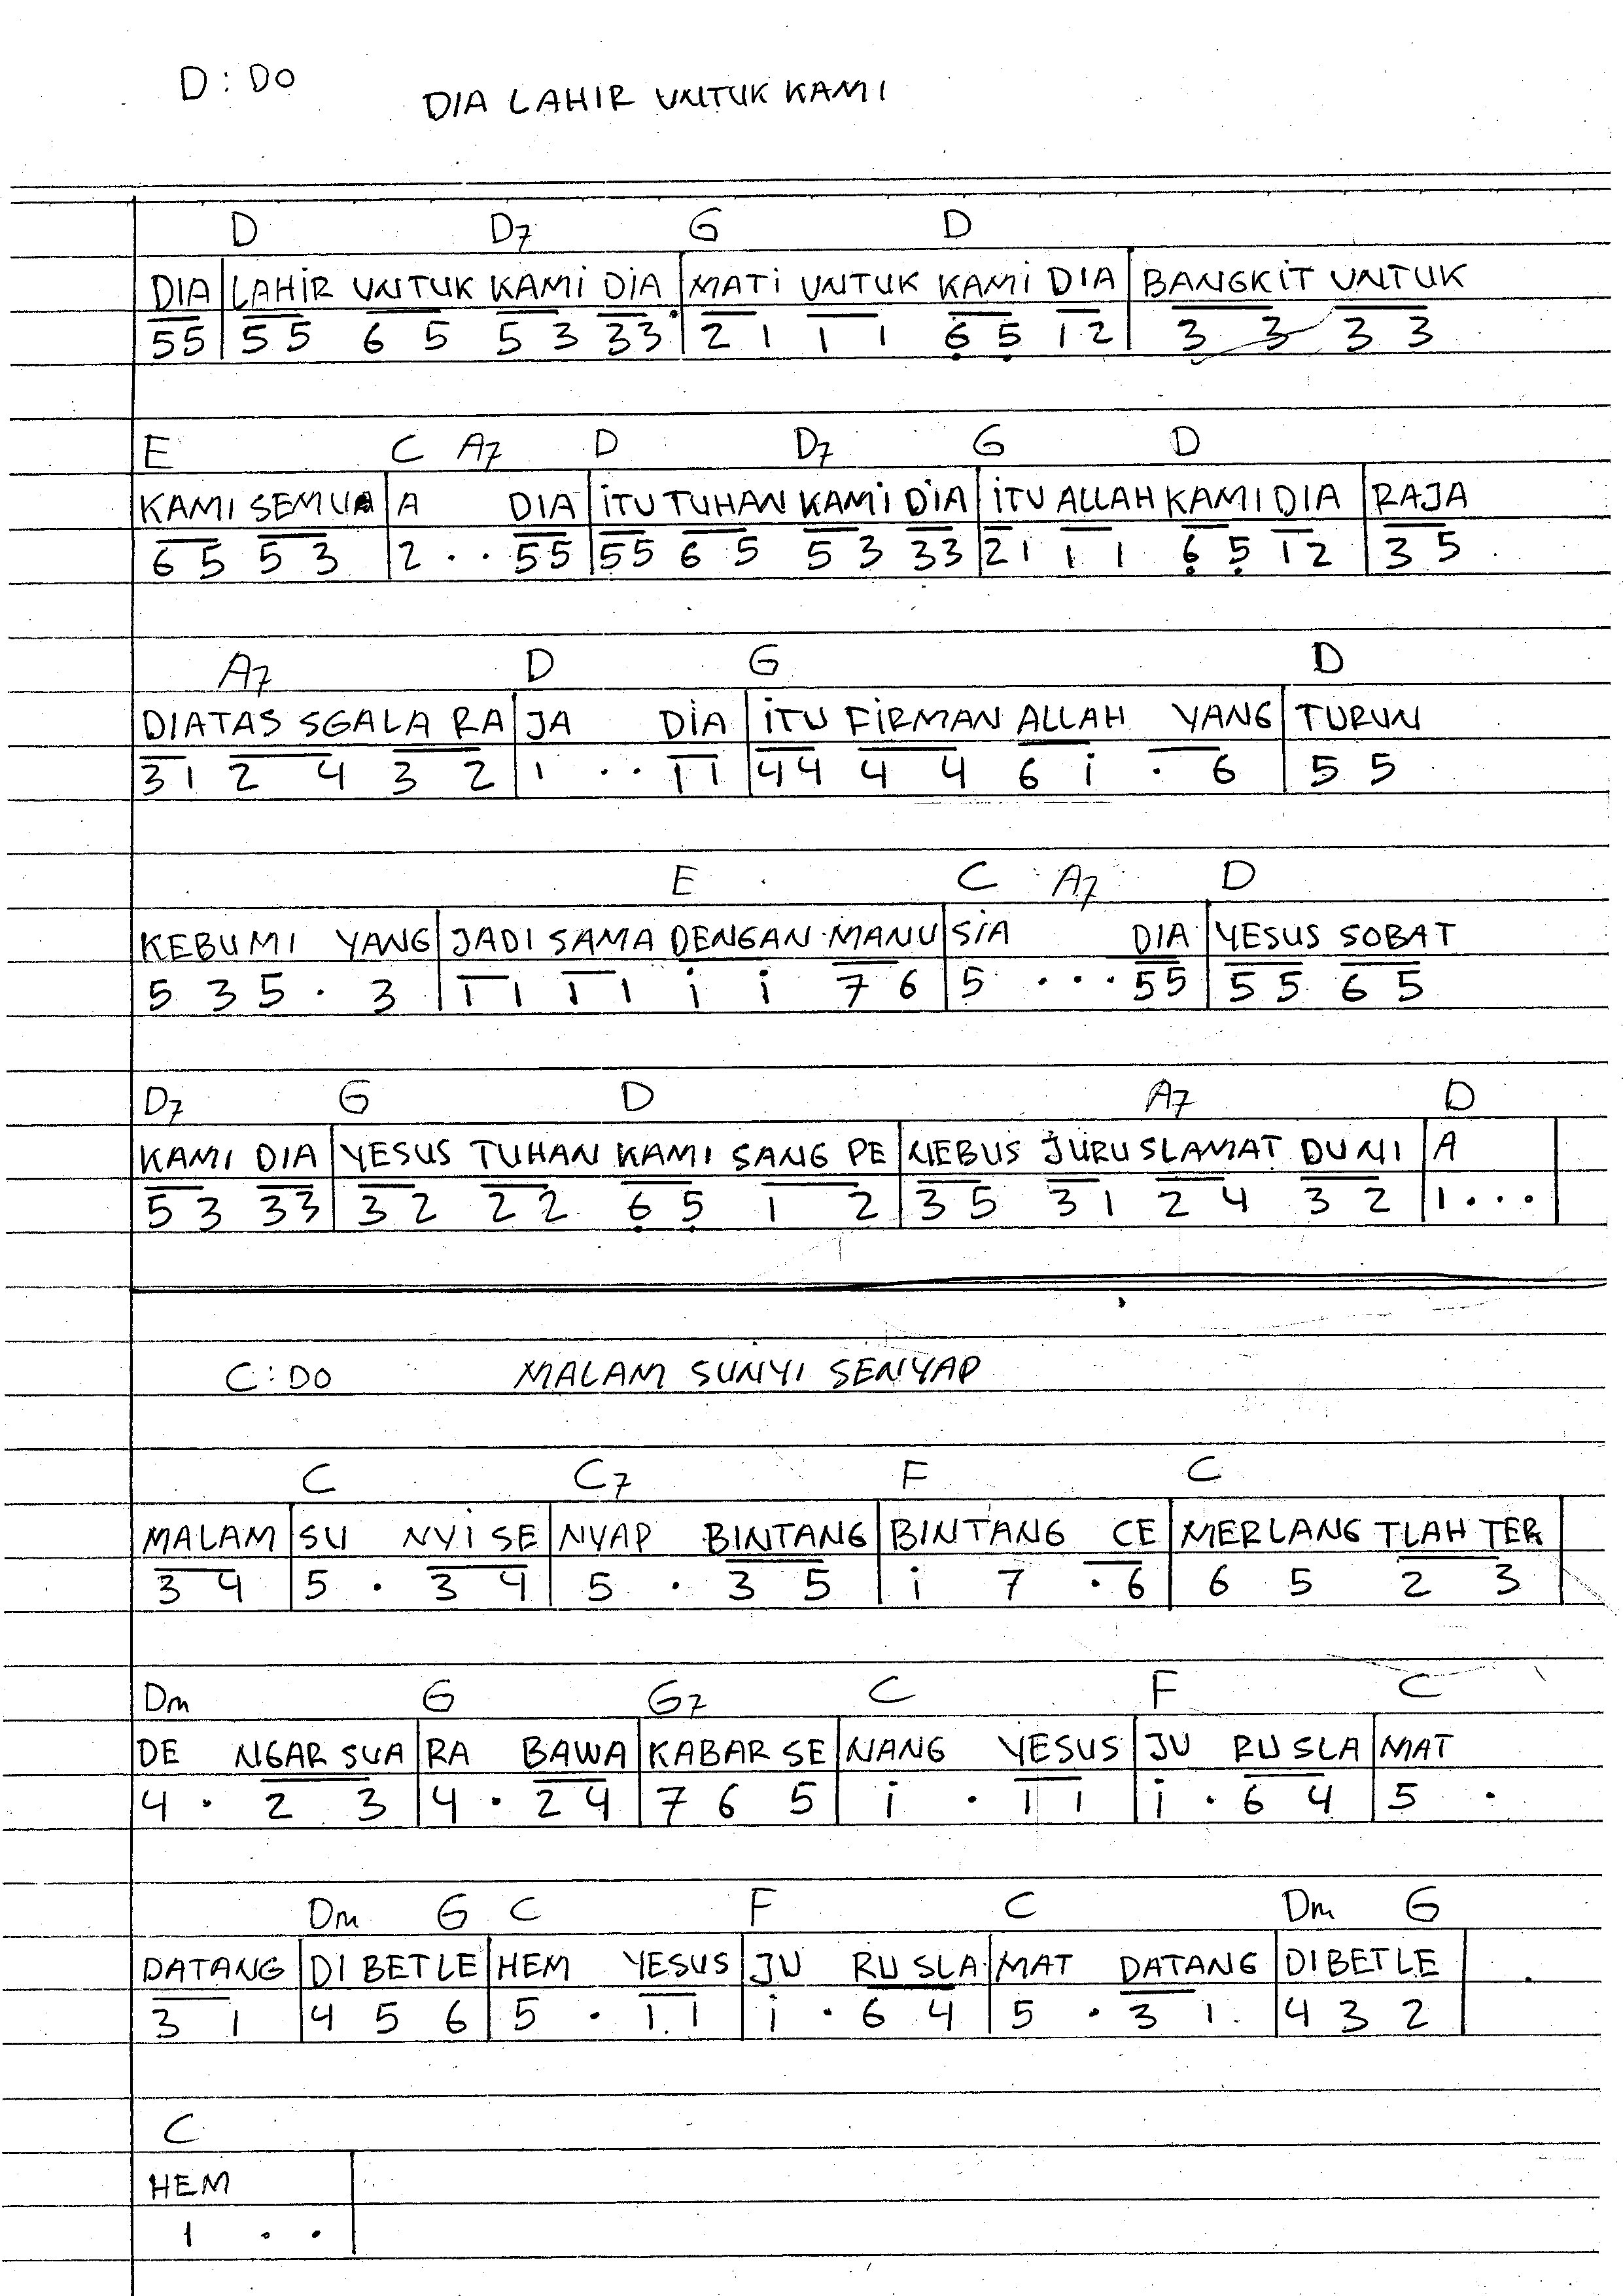 D : DO
DIA LAHIR UNTUK KAMI
D D7 G D
DIA | LAHIR UNTUK KAMI DIA | MATI UNTUK KAMI DIA | BANGKIT UNTUK
55 | 55 65 53 33 | 21 11 6̣5̣ 12 | 33 33
E C A7 D D7 G D
KAMI SEMUA | A DIA | ITU TUHAN KAMI DIA | ITU ALLAH KAMI DIA | RAJA
65 53 | 2 . . 55 | 55 65 53 33 | 21 11 6̣5̣ 12 | 35
A7 D G D
DIATAS SGALA RA | JA DIA | ITU FIRMAN ALLAH YANG | TURUN
31 24 32 | 1 . . 11 | 44 44 6i . 6 | 5 5
E C A7 D
KEBUMI YANG | JADI SAMA DENGAN MANU | SIA DIA | YESUS SOBAT
5 3 5 . 3 | 11 11 i i 76 | 5 . . . 55 | 55 65
D7 G D A7 D
KAMI DIA | YESUS TUHAN KAMI SANG PE | NEBUS JURU SLAMAT DUNI | A |
53 33 | 32 22 6̣5̣ 1 2 | 35 31 24 32 | 1 . . . |
C : DO MALAM SUNYI SENYAP
C C7 F C
MALAM | SU NYI SE | NYAP BINTANG | BINTANG CE | MERLANG TLAH TER |
3 4 | 5 . 34 | 5 . 3 5 | i 7 . 6 | 6 5 2 3 |
Dm G G7 C F C
DE NGAR SUA | RA BAWA | KABAR SE | NANG YESUS | JU RU SLA | MAT
4 . 2 3 | 4 . 24 | 7 6 5 | i . 11 | i . 6 4 | 5 .
Dm G C F C Dm G
DATANG | DI BETLE | HEM YESUS | JU RU SLA | MAT DATANG | DIBETLE |
3 1 | 4 5 6 | 5 . 11 | i . 6 4 | 5 . 3 1 | 4 3 2 |
C
HEM |
1 . . |